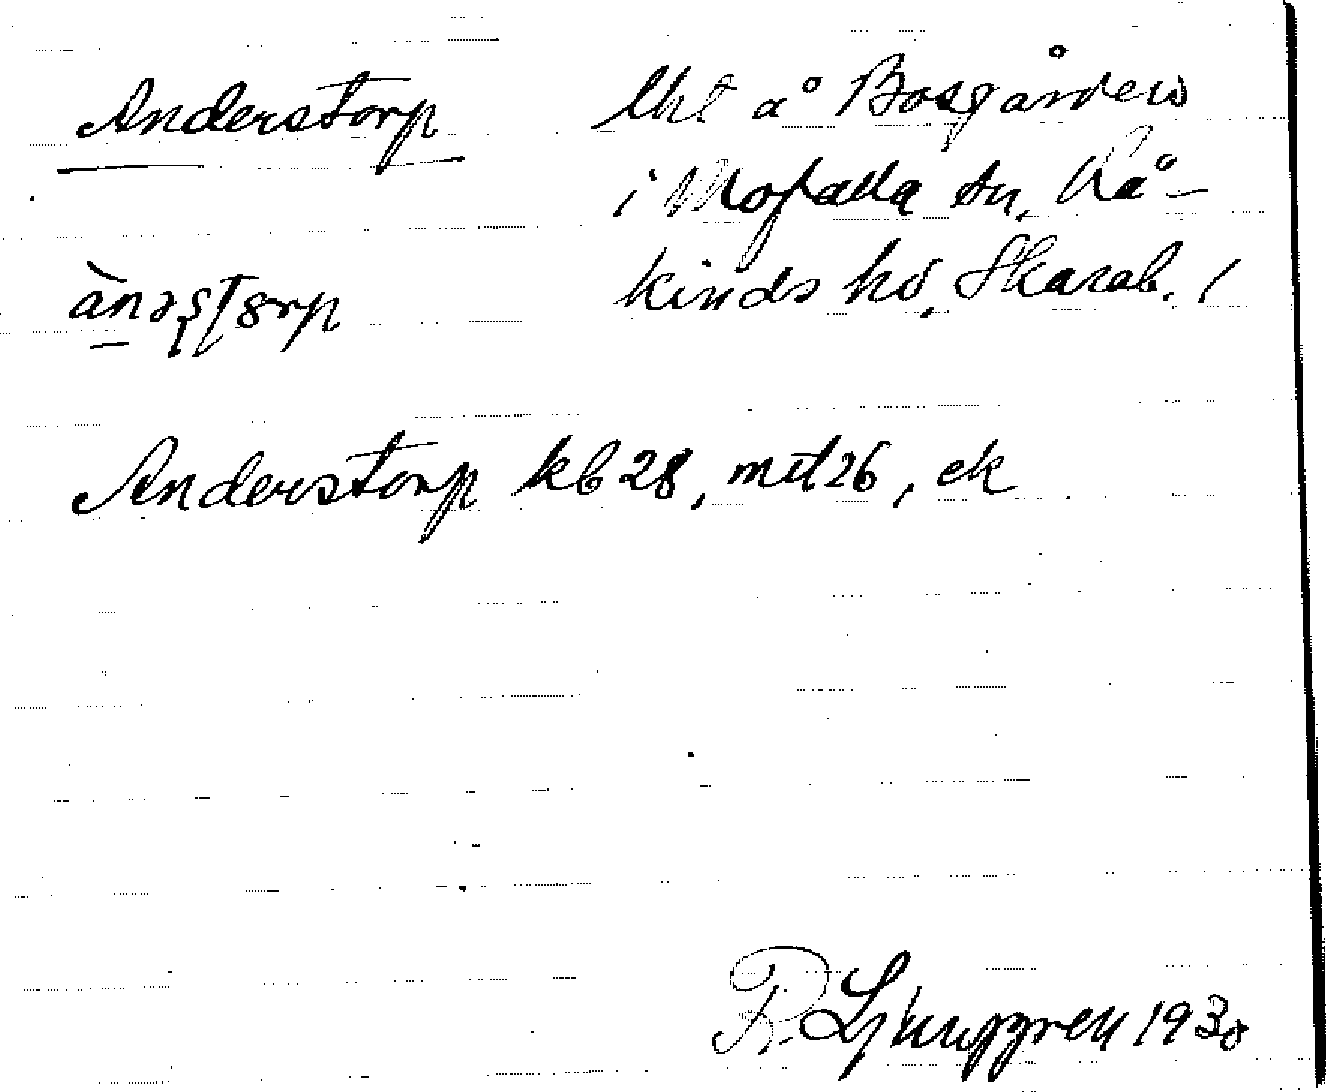 Anderstorp lht å Bosgården
i Mofalla sn, Kå-
kinds hd, Skarab. l
Anderstorp kb 28, mtl 26, ek
R. Ljunggren 1930